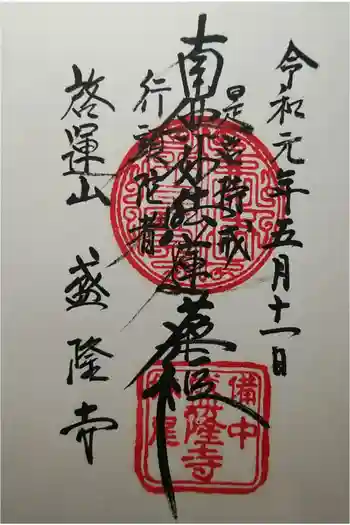 令和元年五月十一日
南無妙法蓮華経
是名持戒
行頭陀者
啓運山 盛隆寺
備中
盛隆寺
妹尾